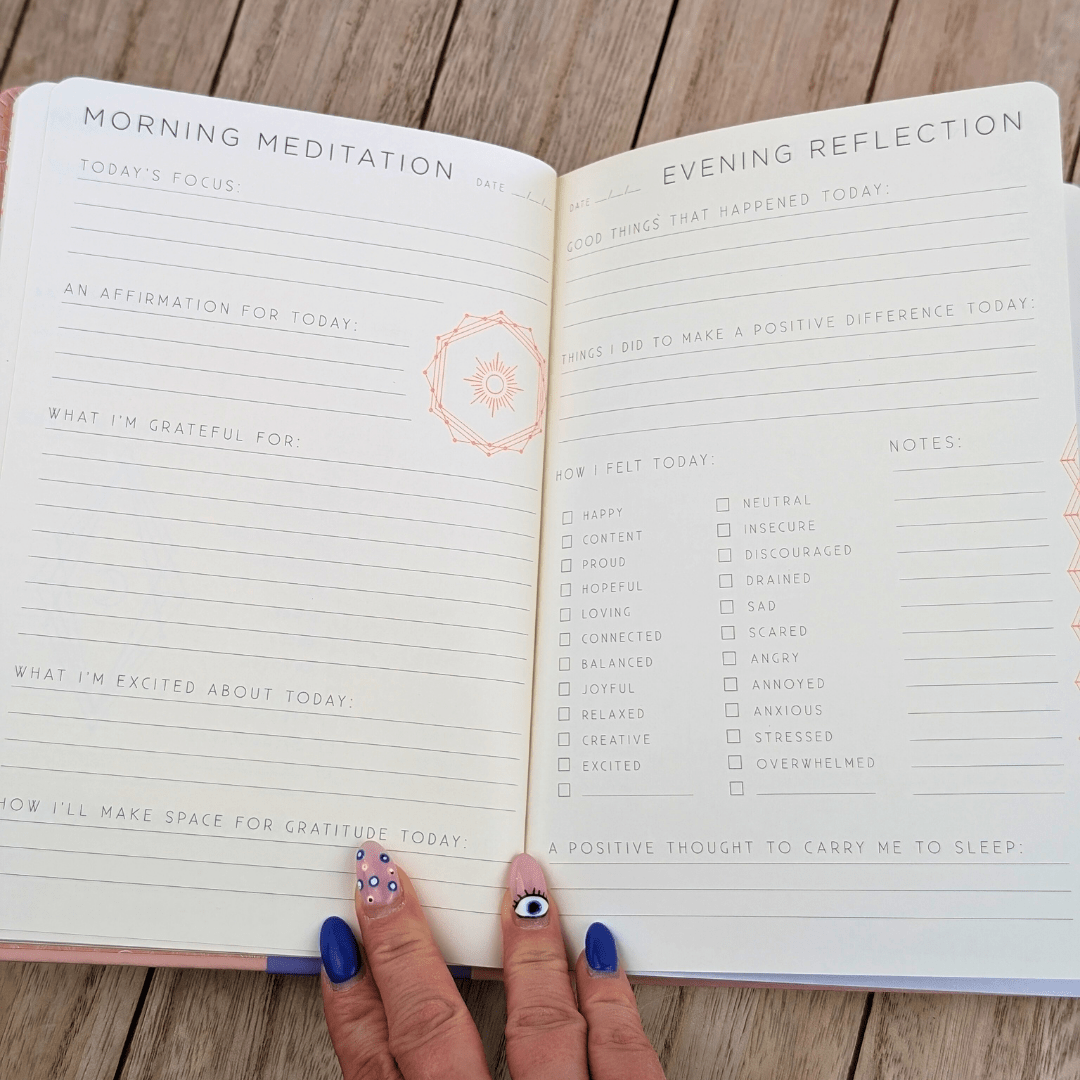 MORNING MEDITATION
DATE __/__/__
TODAY'S FOCUS:
AN AFFIRMATION FOR TODAY:
WHAT I'M GRATEFUL FOR:
WHAT I'M EXCITED ABOUT TODAY:
HOW I'LL MAKE SPACE FOR GRATITUDE TODAY:
EVENING REFLECTION
DATE __/__/__
GOOD THINGS THAT HAPPENED TODAY:
THINGS I DID TO MAKE A POSITIVE DIFFERENCE TODAY:
HOW I FELT TODAY:
HAPPY
CONTENT
PROUD
HOPEFUL
LOVING
CONNECTED
BALANCED
JOYFUL
RELAXED
CREATIVE
EXCITED
NEUTRAL
INSECURE
DISCOURAGED
DRAINED
SAD
SCARED
ANGRY
ANNOYED
ANXIOUS
STRESSED
OVERWHELMED
NOTES:
A POSITIVE THOUGHT TO CARRY ME TO SLEEP: